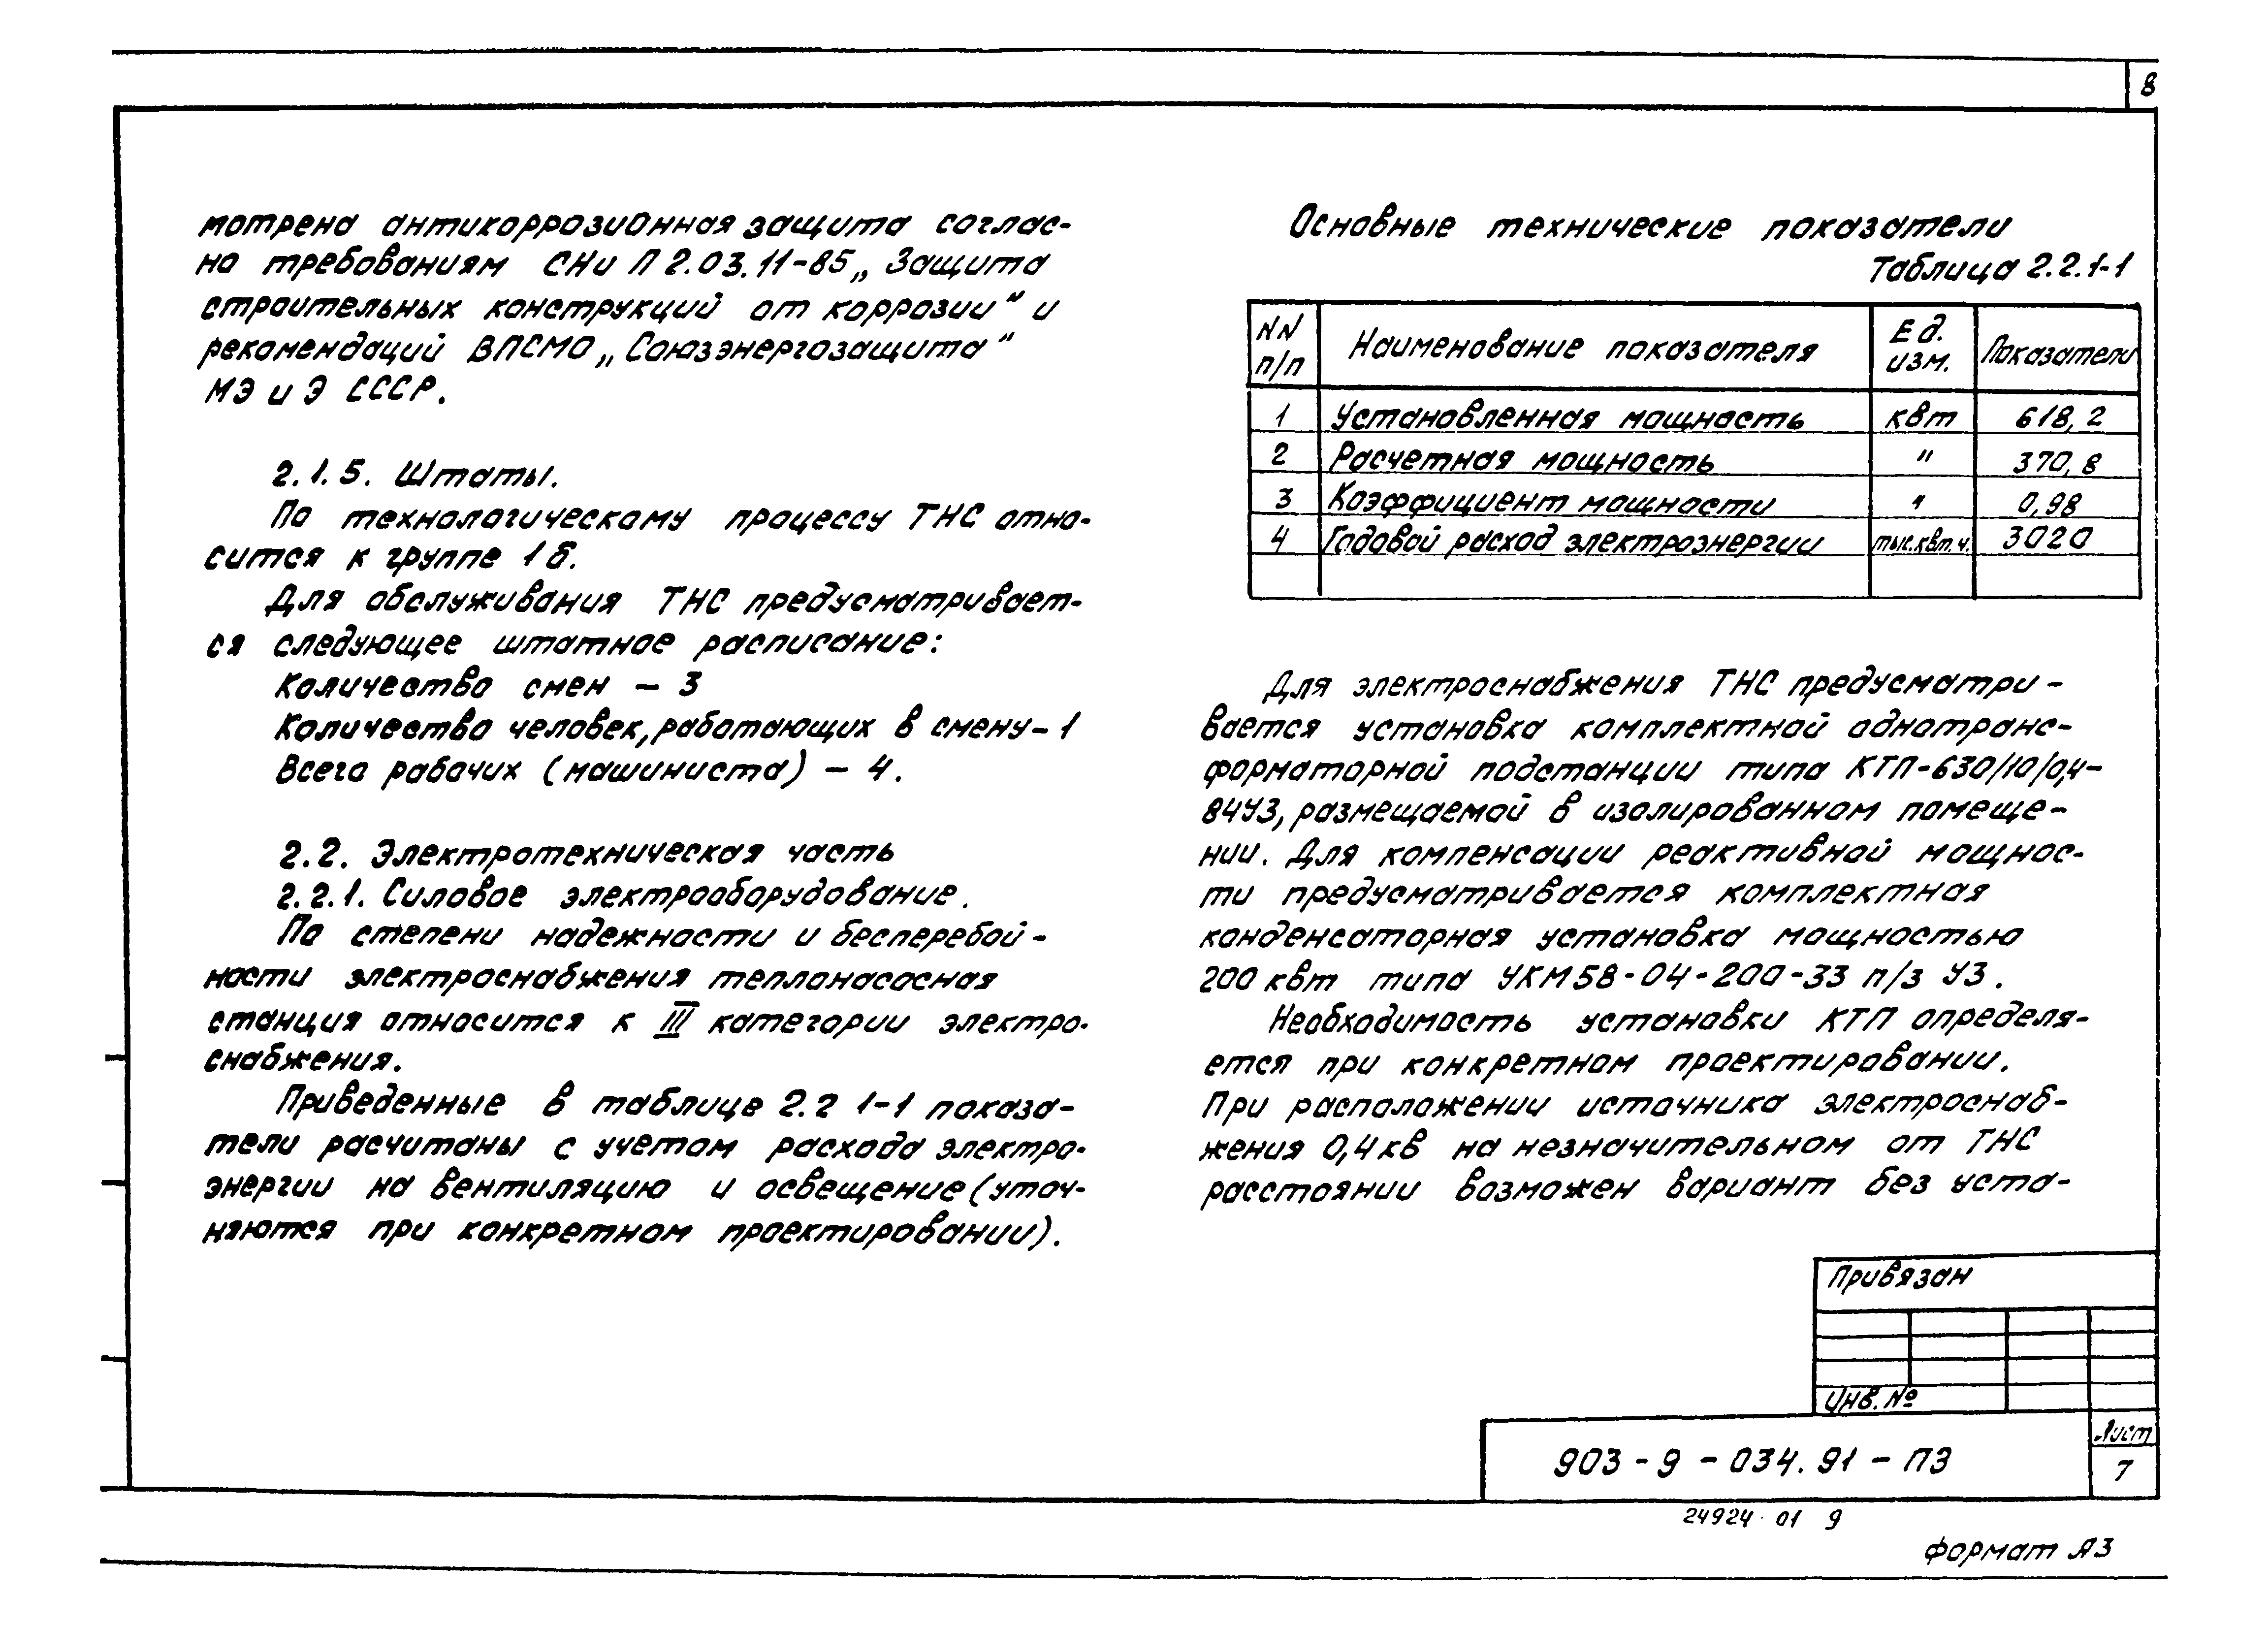 8
мотрена антикоррозионная защита соглас-
но требованиям СНи П 2.03.11-85 „Защита
строительных конструкций от коррозии" и
рекомендаций ВПСМО „Союзэнергозащита"
МЭ и Э СССР.
2.1.5. Штаты.
По технологическому процессу ТНС отно-
сится к группе 1б.
Для обслуживания ТНС предусматривает-
ся следующее штатное расписание:
Количество смен - 3
Количество человек, работающих в смену - 1
Всего рабочих (машиниста) - 4.
2.2. Электротехническая часть
2.2.1. Силовое электрооборудование.
По степени надежности и бесперебой-
ности электроснабжения теплонасосная
станция относится к III категории электро-
снабжения.
Приведенные в таблице 2.2 1-1 показа-
тели расчитаны с учетом расхода электро-
энергии на вентиляцию и освещение (уточ-
няются при конкретном проектировании).
Основные технические показатели
Таблица 2.2.1-1
NN п/п Наименование показателя Ед. изм. Показатели
1 Установленная мощность квт 618,2
2 Расчетная мощность " 370,8
3 Коэффициент мощности " 0,98
4 Годовой расход электроэнергии тыс.квт.ч. 3020
Для электроснабжения ТНС предусматри-
вается установка комплектной однотранс-
форматорной подстанции типа КТП-630/10/0,4-
84У3, размещаемой в изолированном помеще-
нии. Для компенсации реактивной мощнос-
ти предусматривается комплектная
конденсаторная установка мощностью
200 квт типа УКМ58-04-200-33 п/з У3.
Необходимость установки КТП определя-
ется при конкретном проектировании.
При расположении источника электроснаб-
жения 0,4 кв на незначительном от ТНС
расстоянии возможен вариант без уста-
Привязан
Инв. №
903-9-034.91-ПЗ
Лист
7
24924-01 9
формат А3